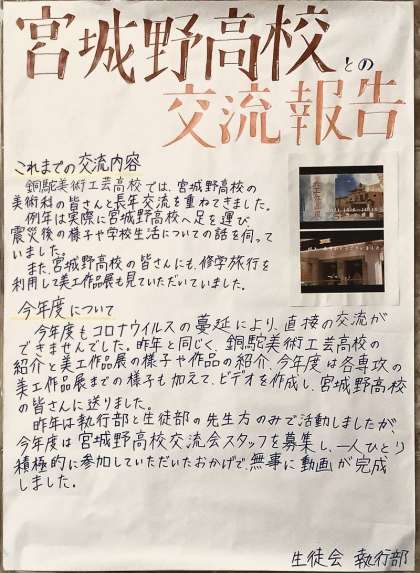 宮城野高校との
交流報告
これまでの交流内容
銅駝美術工芸高校では、宮城野高校の
美術科の皆さんと長年交流を重ねてきました。
例年は実際に宮城野高校へ足を運び
震災後の様子や学校生活についての話を伺って
いました。
また、宮城野高校の皆さんにも、修学旅行を
利用して美工作品展も見ていただいていました。
今年度について
今年度もコロナウイルスの蔓延により、直接の交流が
できませんでした。昨年と同じく、銅駝美術工芸高校の
紹介と美工作品展の様子や作品の紹介、今年度は各専攻の
美工作品展までの様子も加えて、ビデオを作成し、宮城野高校
の皆さんに送りました。
昨年は執行部と生徒部の先生方のみで活動しましたが
今年度は宮城野高校交流会スタッフを募集し、一人ひとり
積極的に参加していただいたおかげで、無事に動画が完成
しました。
生徒会 執行部